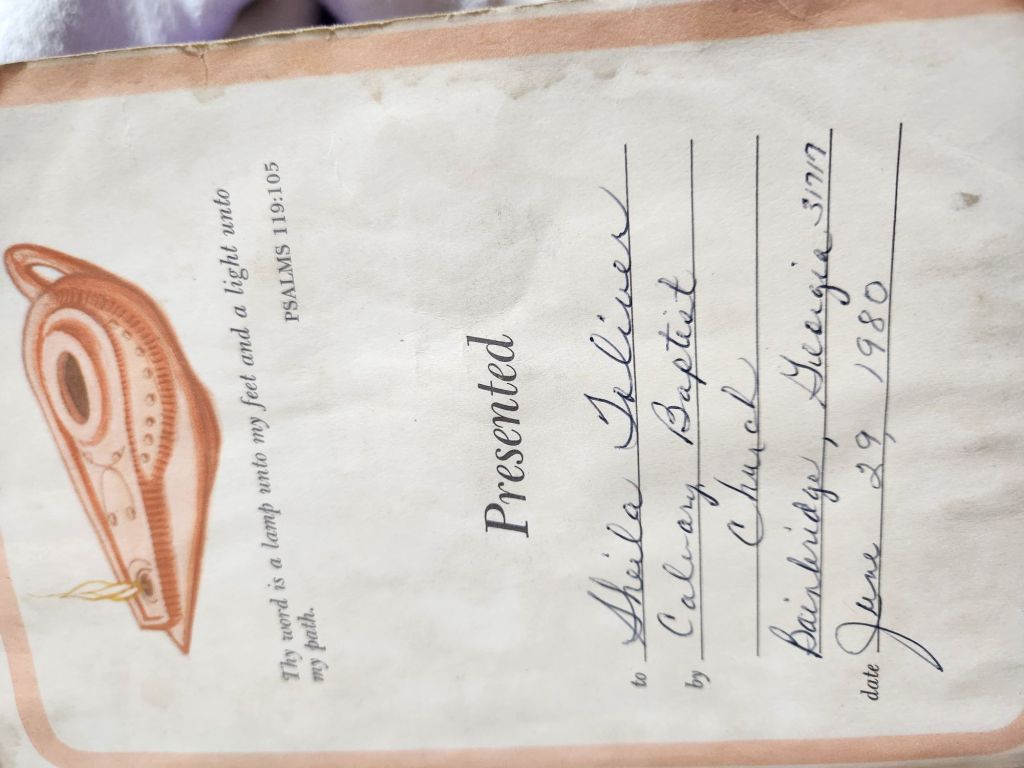 Thy word is a lamp unto my feet and a light unto
my path.
PSALMS 119:105
Presented
to Sheila Toliver
by Calvary Baptist
Church
Bainbridge, Georgia 31717
date June 29, 1980